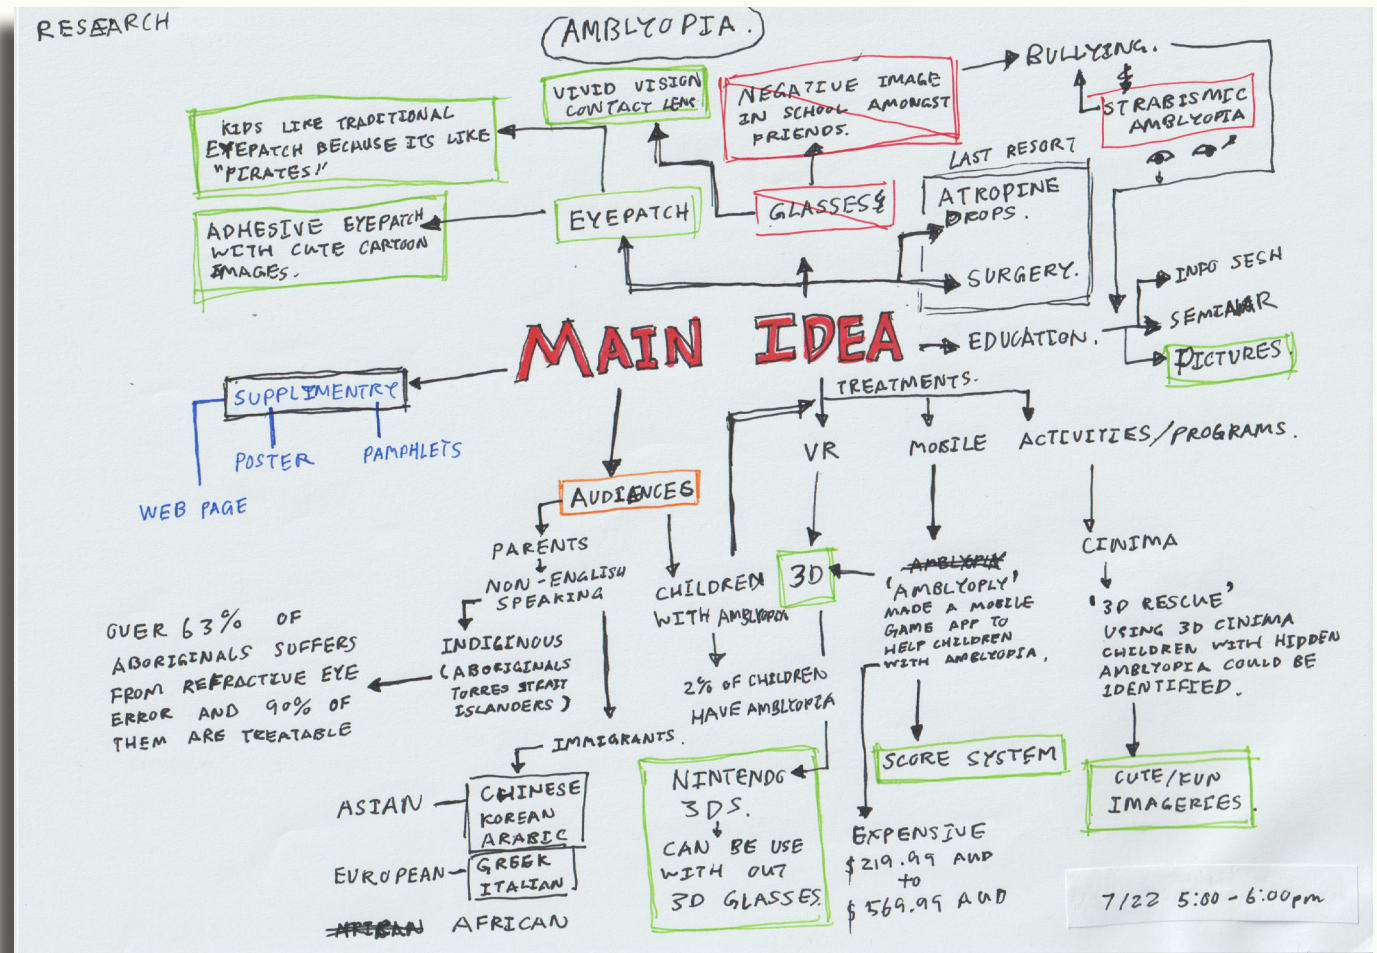 RESEARCH
AMBLYOPIA.
VIVID VISION
CONTACT LENS
NEGATIVE IMAGE
IN SCHOOL AMONGST
FRIENDS.
BULLYING.
&
STRABISMIC
AMBLYOPIA
KIDS LIKE TRADITIONAL
EYEPATCH BECAUSE ITS LIKE
"PIRATES!"
ADHESIVE EYEPATCH
WITH CUTE CARTOON
IMAGES.
EYEPATCH
GLASSES
LAST RESORT
ATROPINE
DROPS.
SURGERY.
MAIN IDEA
EDUCATION.
INFO SESH
SEMINAR
PICTURES.
SUPPLIMENTRY
WEB PAGE
POSTER
PAMPHLETS
TREATMENTS.
VR
MOBILE
ACTIVITIES/PROGRAMS.
AUDIENCES
PARENTS
NON-ENGLISH
SPEAKING
INDIGINOUS
(ABORIGINALS
TORRES STRAIT
ISLANDERS)
OVER 63% OF
ABORIGINALS SUFFERS
FROM REFRACTIVE EYE
ERROR AND 90% OF
THEM ARE TREATABLE
IMMIGRANTS.
ASIAN
CHINESE
KOREAN
ARABIC
EUROPEAN
GREEK
ITALIAN
AFRICAN
AFRICAN
CHILDREN
WITH AMBLYOPIA
2% OF CHILDREN
HAVE AMBLYOPIA
3D
NINTENDO
3DS.
CAN BE USE
WITH OUT
3D GLASSES.
AMBLYOPIA
'AMBLYOPLY'
MADE A MOBILE
GAME APP TO
HELP CHILDREN
WITH AMBLYOPIA.
SCORE SYSTEM
EXPENSIVE
$219.99 AUD
to
$569.99 AUD
CINIMA
'3D RESCUE'
USING 3D CINIMA
CHILDREN WITH HIDDEN
AMBLYOPIA COULD BE
IDENTIFIED.
CUTE/FUN
IMAGERIES.
7/22 5:00 - 6:00pm